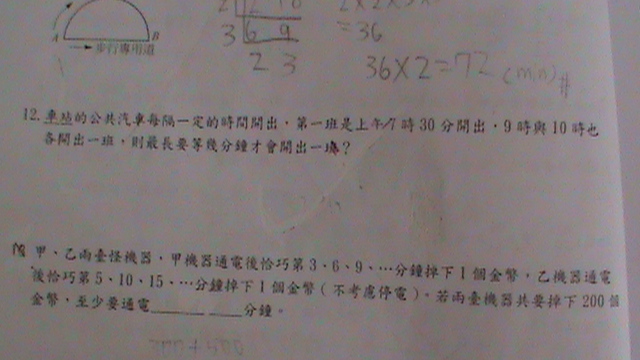 A B
步行專用道
3 6 9
2 3
=36
36×2=72 (min)#
12. 車站的公共汽車每隔一定的時間開出，第一班是上午7時30分開出，9時與10時也
各開出一班，則最長要等幾分鐘才會開出一班？
甲、乙兩臺怪機器，甲機器通電後恰巧第3、6、9、…分鐘掉下1個金幣，乙機器通電
後恰巧第5、10、15、…分鐘掉下1個金幣(不考慮停電)。若兩臺機器共要掉下200個
金幣，至少要通電______ ____分鐘。